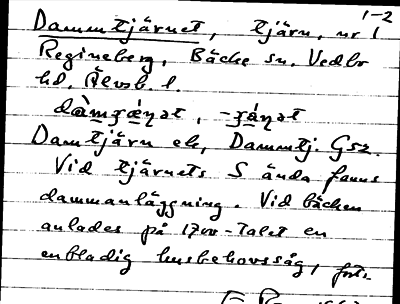 1-2
Dammtjärnet, tjärn, nr 1
Regineberg, Bäcke sn. Vedbo
hd. Älvsb. l.
Damtjärn el. Dammtj. Gsz.
Vid tjärnets S ända fanns
dammanläggning. Vid bäcken
anlades på 1700-talet en
enbladig husbehovssåg, fort-